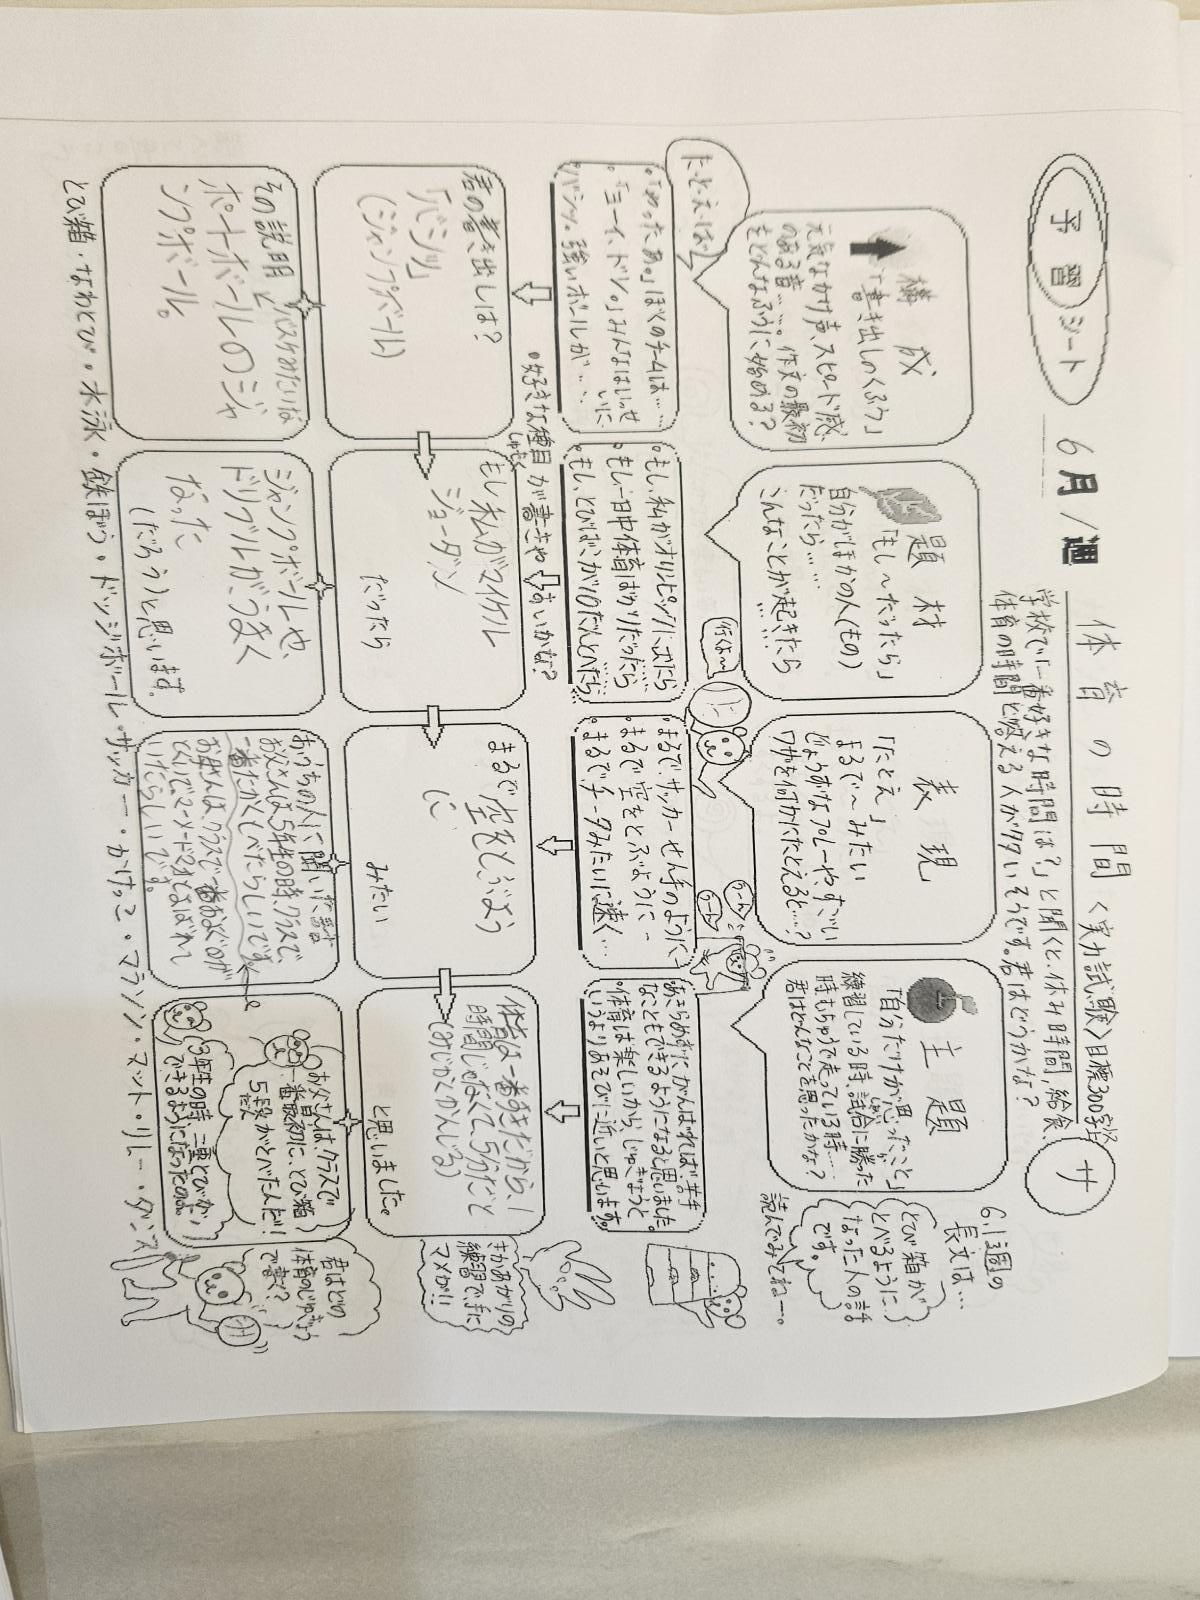 予習シート
6月1週
体育の時間<実力試験>目標300字 サ
学校で「一番好きな時間は?」と聞くと、休み時間、給食、
体育の時間と答える人が多いそうです。君はどうかな?
構成
「書き出しのくふう」
元気なかけ声、スピード感
のある音…。作文の最初
をどんなふうに始める?
題材
「もし〜だったら」
自分がほかの人(もの)
だったら……
こんなことが起きたら
……
表現
「たとえ」
まるで〜みたい
じょうずなプレーや、すごい
ワザを何かにたとえると…?
主題
「自分だけが思ったこと」
練習している時、試合に勝った
時、もちゅうで走っている時…
君はどんなことを思ったかな?
6.1週の
長文は…
とび箱が
とべるように
なった人の話
です。
読んでみてねー。
たとえば
。「やったあ。」ぼくのチームは……
。「ヨーイ、ドン。」みんなはいっせいに
。バシッ。強いボールが…
。もし、私がオリンピックに出たら
。もし一日中体育ばかりだったら
。もし、とびばこが10だんとべたら
行くよ〜
。まるでサッカーせん手のように…
。まるで空をとぶように…
。まるでチータみたいに速く…
うーん
うーん
。あきらめずにがんばれば、苦手
なこともできるようになると思いました。
。体育は楽しいから、じゅぎょうと
いうよりあそびに近いと思います。
。好きな種目が書きやすいかな?
しゅもく
君の書き出しは?
「バシッ」
(ジャンプボール)
もし私がマイケル
ジョーダン
だったら
まるで空をとぶよう
に
みたい
体育は一番すきだから、1
時間じゃなくて5分だと
(みじかくかんじる)
と思いました。
きのあがりの
練習で手に
マメが!!
その説明
バスケみたいな
ポートボールのジャ
ンプボール。
ジャンプボールや、
ドリブルがうまく
なった
(だろう)と思います。
おうちの人に聞いた話
お父さんは5年生の時、クラスで
一番たかくとべたらしいです。
お母さんは、クラスで一番およぐのが
とくいでマーメードスイ
いけたらしいです。
お父さんは、クラスで
一番最初に、とび箱
5段がとべたんだ!
3年生の時、二重とびが
できるようになったのよ。
君はどの
体育のじゅぎょう
で書く?
とび箱・なわとび・水泳・鉄ぼう・ドッジボール・サッカー・かけっこ・マラソン・マット・リレー・ダンス